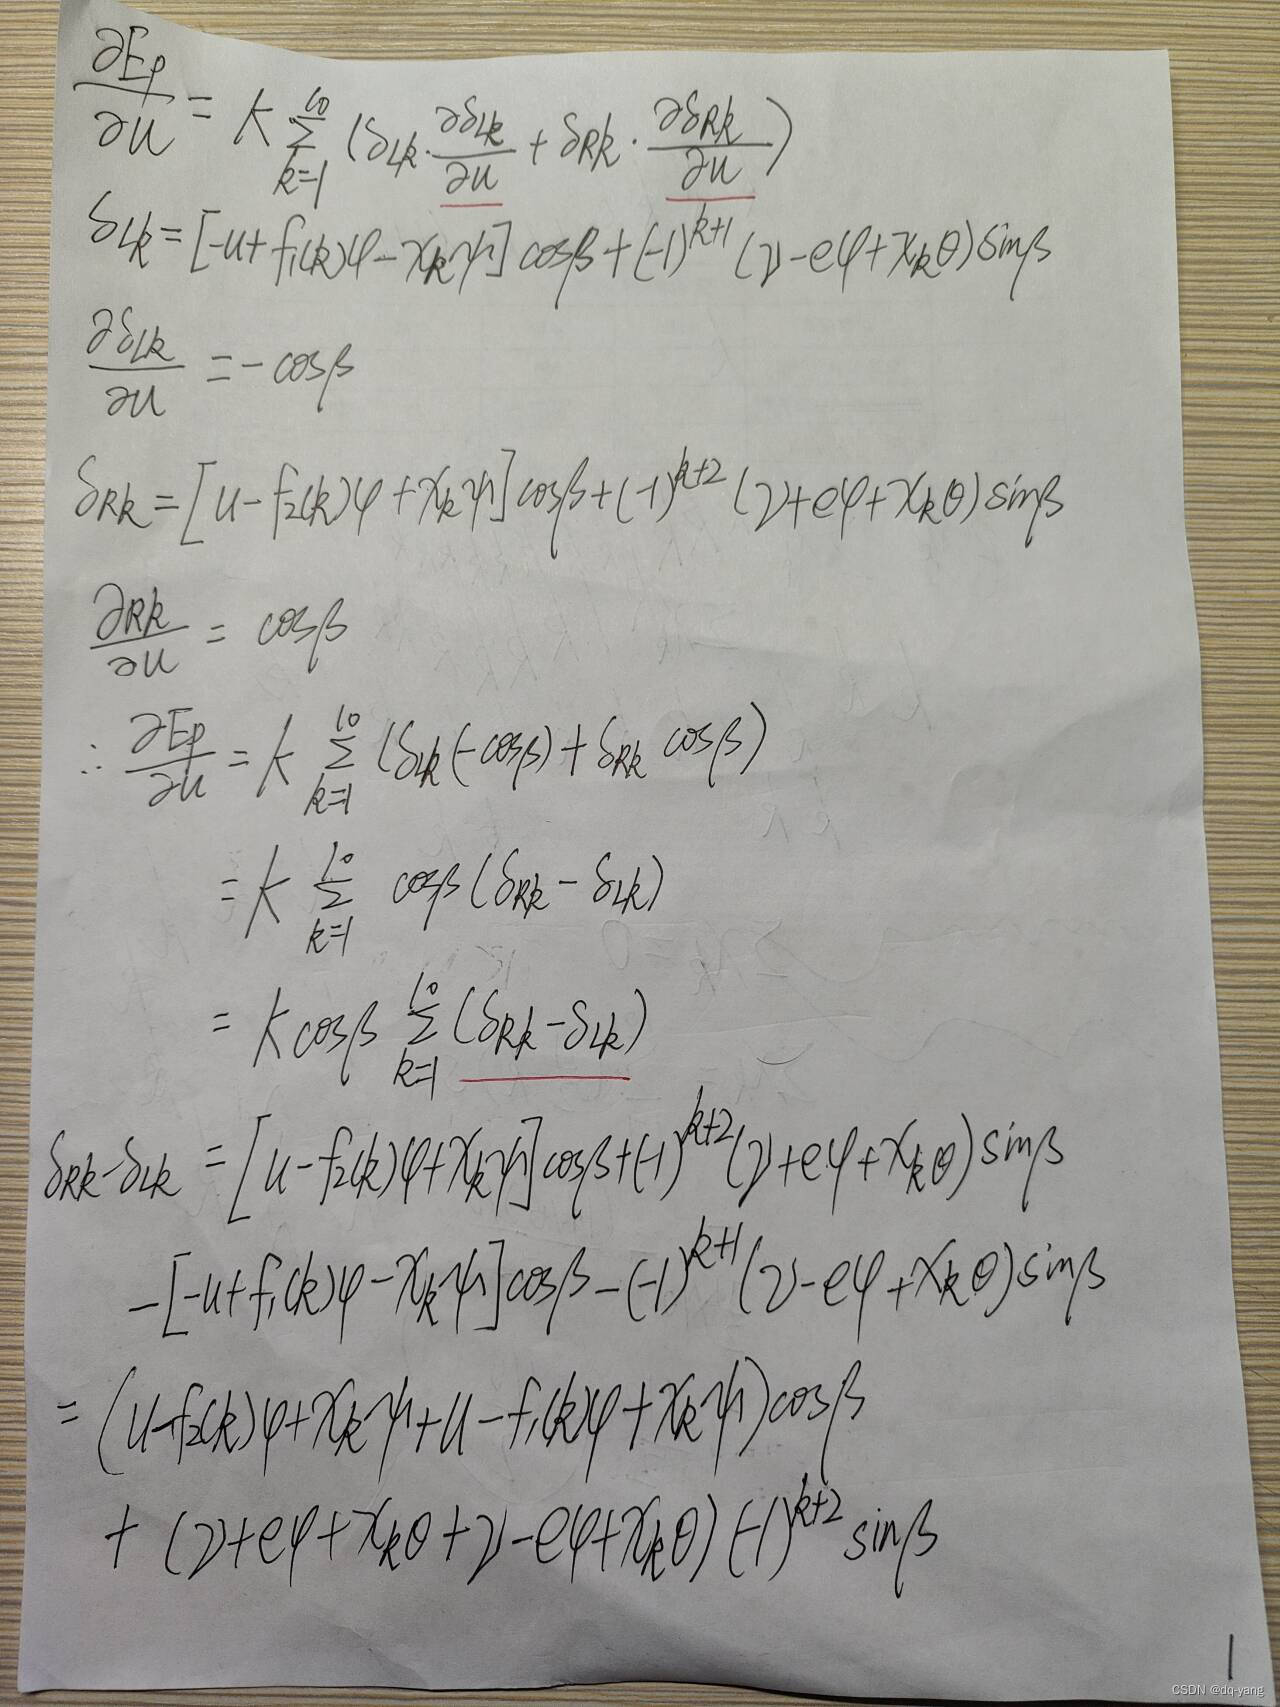 ∂Ep/∂u = K Σ_{k=1}^{10} (δLk · ∂δLk/∂u + δRk · ∂δRk/∂u)
δLk = [-u + f₁(k)φ - xkψ] cosβ + (-1)^{k+1} (v - eφ + xkθ) sinβ
∂δLk/∂u = -cosβ
δRk = [u - f₂(k)φ + xkψ] cosβ + (-1)^{k+2} (v + eφ + xkθ) sinβ
∂Rk/∂u = cosβ
∴ ∂Ep/∂u = K Σ_{k=1}^{10} (δLk (-cosβ) + δRk cosβ)
= K Σ_{k=1}^{10} cosβ (δRk - δLk)
= K cosβ Σ_{k=1}^{10} (δRk - δLk)
δRk - δLk = [u - f₂(k)φ + xkψ] cosβ + (-1)^{k+2} (v + eφ + xkθ) sinβ
- [-u + f₁(k)φ - xkψ] cosβ - (-1)^{k+1} (v - eφ + xkθ) sinβ
= (u - f₂(k)φ + xkψ + u - f₁(k)φ + xkψ) cosβ
+ (v + eφ + xkθ + v - eφ + xkθ) (-1)^{k+2} sinβ
1
CSDN @dq-yang